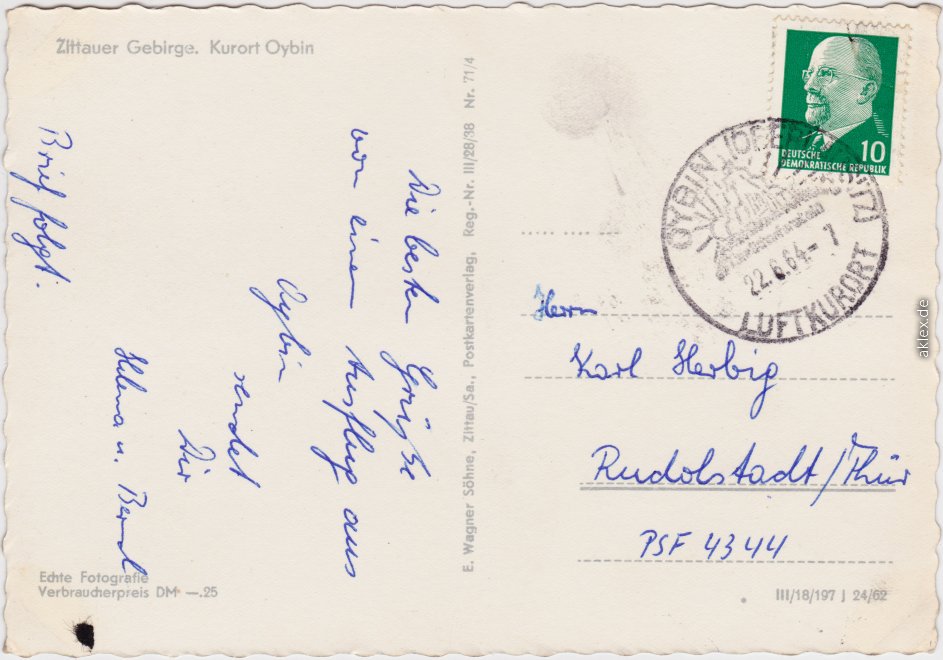 Zittauer Gebirge. Kurort Oybin
Die besten Grüße
von einem Ausflug aus
Oybin
sendet
Dir
Helma u. Bernd
Brief folgt.
Echte Fotografie
Verbraucherpreis DM —.25
E. Wagner Söhne, Zittau/Sa., Postkartenverlag, Reg.-Nr. III/28/38 Nr. 71/4
10
DEUTSCHE
DEMOKRATISCHE REPUBLIK
OYBIN
22.6.64-7
LUFTKURORT
Herrn
Karl Herbig
Rudolstadt/Thür
PSF 4344
III/18/197 J 24/62
aklex.de